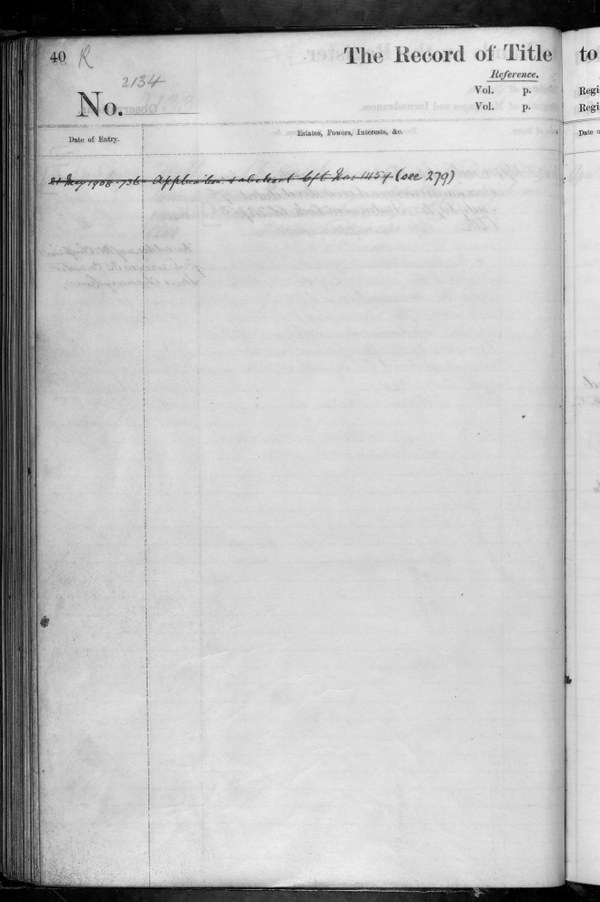 40 R
The Record of Title
to
2134
No.
Reference.
Vol. p.
Vol. p.
Regi
Regi
Date of Entry.
Estates, Powers, Interests, &c.
Date o
21 May 1908 736 Application & abstract left No. 1454 (see 279)